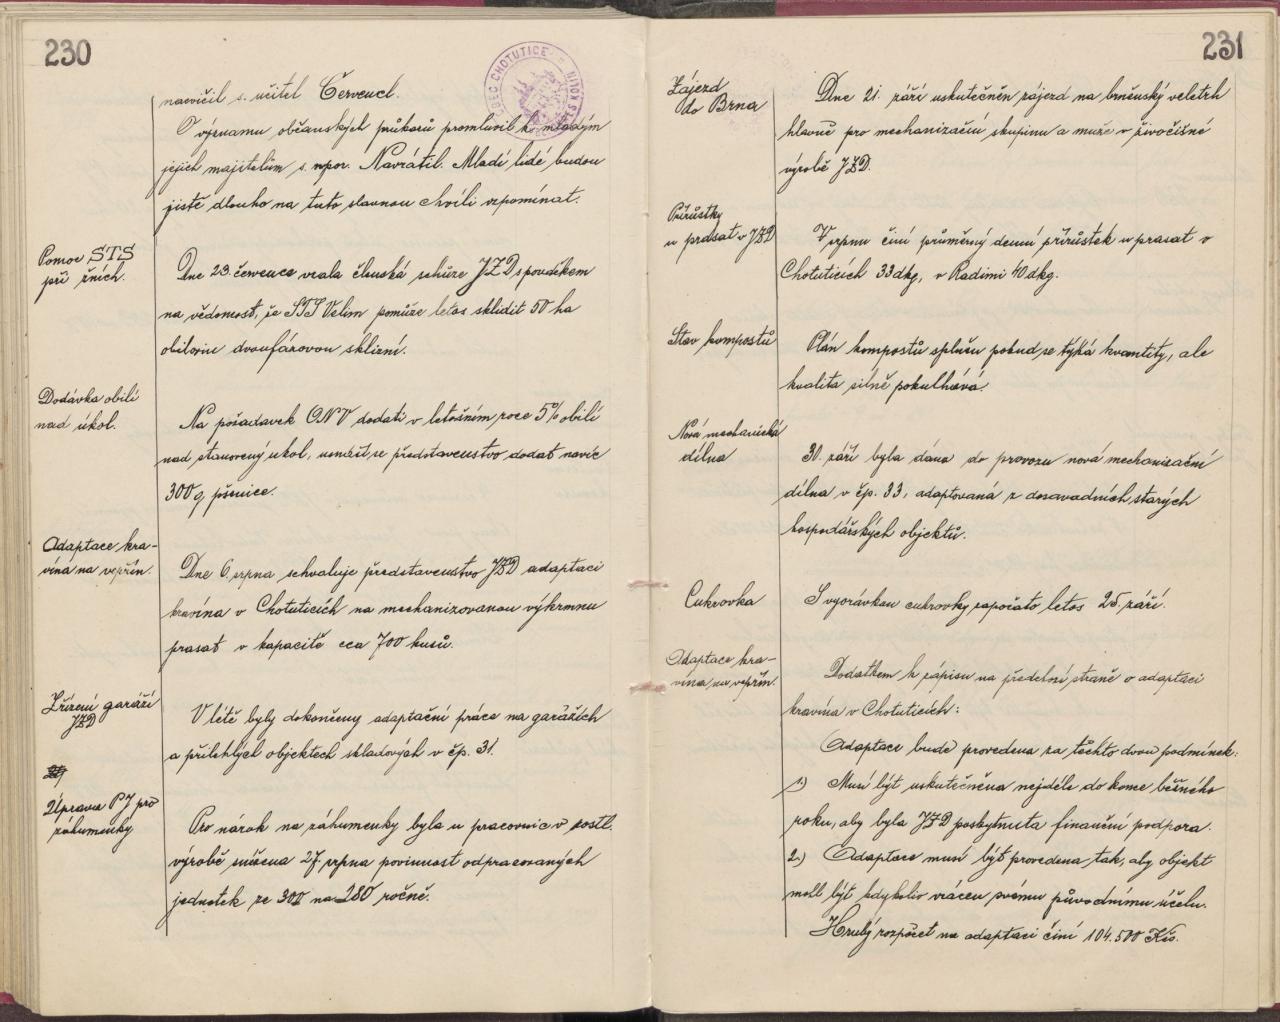 230
OBEC CHOTUTICE
OKRES KOLÍN
nacvičil s. učitel Červencl.
O významu občanských průkazů promluvil k mladým
jejich majitelům s. npor. Navrátil. Mladí lidé budou
jistě dlouho na tuto slavnou chvíli vzpomínat.
Pomoc STS
při žních.
Dne 23. července vzala členská schůze JZD s povděkem
na vědomost, že STS Velim pomůže letos sklidit 50 ha
obilovin dvoufázovou sklizní.
Dodávka obilí
nad úkol.
Na požadavek ONV dodati v letošním roce 5% obilí
nad stanovený úkol, usneslo se představenstvo dodat navíc
300 q pšenice.
Adaptace kra-
vína na vepřín.
Dne 6. srpna schvaluje představenstvo JZD adaptaci
kravína v Chotuticích na mechanizovanou výkrmnu
prasat v kapacitě cca 700 kusů.
Zřízení garáží
JZD
V létě byly dokončeny adaptační práce na garážích
a přilehlých objektech skladových v čp. 31.
Úprava PJ pro
záhumenky
Pro nárok na záhumenky byla u pracovnic v rostl.
výrobě snížena 27. srpna povinnost odpracovaných
jednotek ze 300 na 280 ročně.
231
Zájezd
do Brna
Dne 21. září uskutečněn zájezd na brněnský veletrh
hlavně pro mechanizační skupinu a muže v živočišné
výrobě JZD.
Přírůstky
u prasat v JZD
V srpnu činí průměrný denní přírůstek u prasat v
Chotuticích 33 dkg, v Radimi 40 dkg.
Stav kompostů
Plán kompostů splněn pokud se týká kvantity, ale
kvalita silně pokulhává.
Nová mechanická
dílna
30. září byla dána do provozu nová mechanisační
dílna v čp. 33, adaptovaná z dosavadních starých
hospodářských objektů.
Cukrovka
S vyorávkou cukrovky započato letos 25. září.
Adaptace kra-
vína na vepřín.
Dodatkem k zápisu na předešlé straně o adaptaci
kravína v Chotuticích:
Adaptace bude provedena za těchto dvou podmínek:
1.) Musí být uskutečněna nejdéle do konce běžného
roku, aby byla JZD poskytnuta finanční podpora.
2.) Adaptace musí být provedena tak, aby objekt
mohl být kdykoliv vrácen svému původnímu účelu.
Hrubý rozpočet na adaptaci činí 104.500 Kčs.